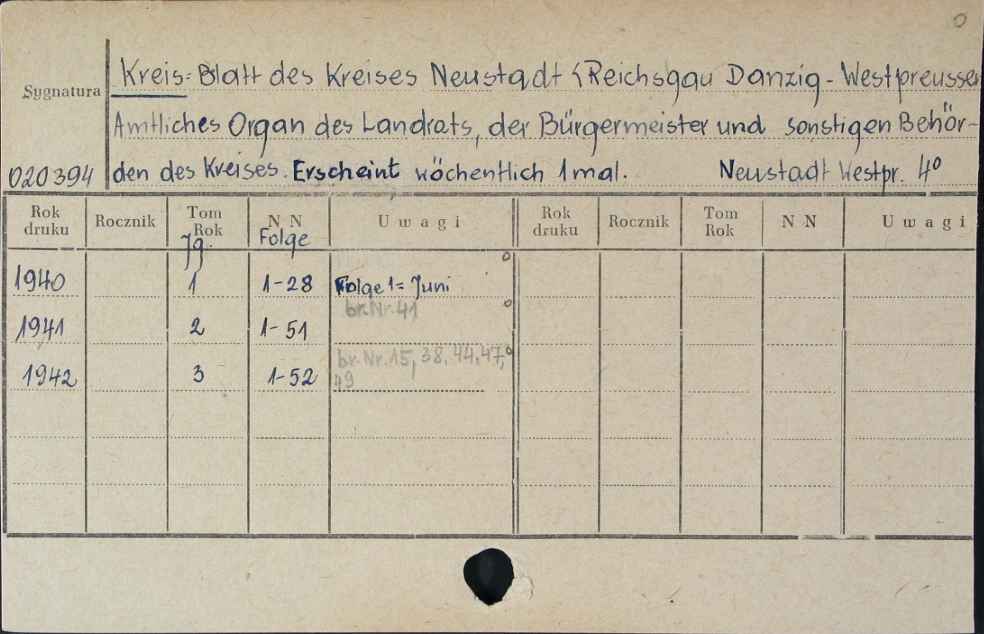 0
Kreis-Blatt des Kreises Neustadt (Reichsgau Danzig-Westpreussen
Sygnatura
Amtliches Organ des Landrats, der Bürgermeister und sonstigen Behör-
020394 den des Kreises. Erscheint wöchentlich 1mal. Neustadt Westpr. 4°
Rok druku Rocznik Tom Rok N N Uwagi Rok druku Rocznik Tom Rok N N Uwagi
Jg. Folge
1940 1 1-28 Folge 1= Juni
br. Nr. 41
1941 2 1-51
br. Nr. 15, 38, 44, 47,
1942 3 1-52 49